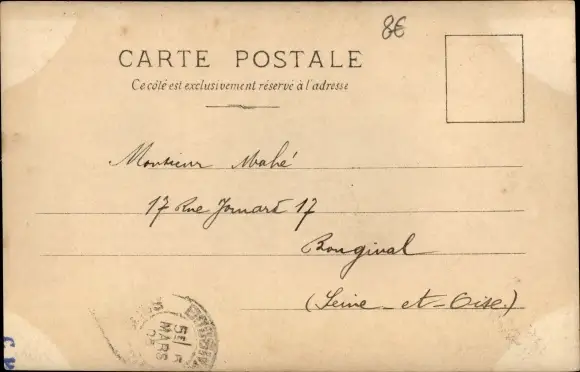 8€
CARTE POSTALE
Ce côté est exclusivement réservé à l'adresse
Monsieur Mahé
17 Rue Jomard 17
Bougival
(Seine-et-Oise.)
5E
MARS